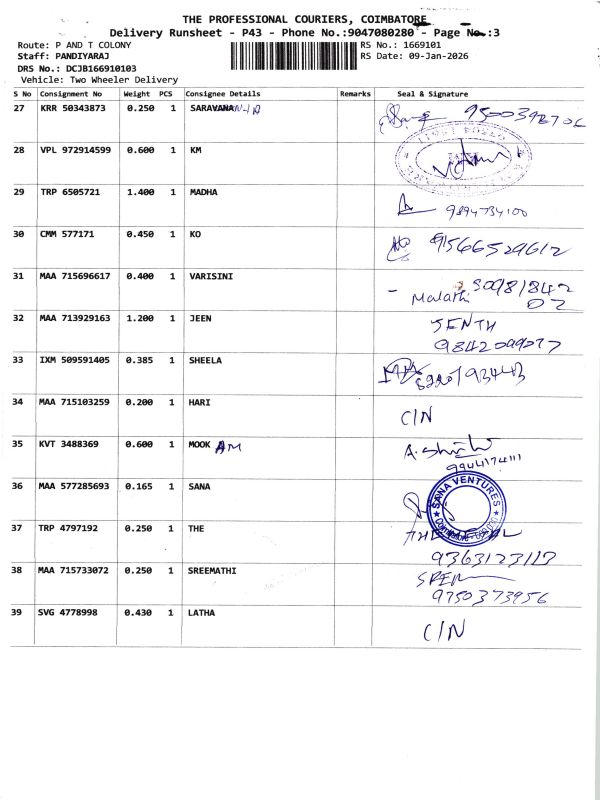 THE PROFESSIONAL COURIERS, COIMBATORE
Delivery Runsheet - P43 - Phone No.:9047080280 - Page No.:3
Route: P AND T COLONY
RS No.: 1669101
Staff: PANDIYARAJ
RS Date: 09-Jan-2026
DRS No.: DCJB166910103
Vehicle: Two Wheeler Delivery
S No Consignment No Weight PCS Consignee Details Remarks Seal & Signature
27 KRR 50343873 0.250 1 SARAVANA
28 VPL 972914599 0.600 1 KM
29 TRP 6505721 1.400 1 MADHA
9894734100
30 CMM 577171 0.450 1 KO 9566529612
31 MAA 715696617 0.400 1 VARISINI
Malathi
32 MAA 713929163 1.200 1 JEEN
33 IXM 509591405 0.385 1 SHEELA
34 MAA 715103259 0.200 1 HARI
C/N
35 KVT 3488369 0.600 1 MOOK AM
36 MAA 577285693 0.165 1 SANA
SANA VENTURES
37 TRP 4797192 0.250 1 THE
9363123113
38 MAA 715733072 0.250 1 SREEMATHI
9750373956
39 SVG 4778998 0.430 1 LATHA
C/N